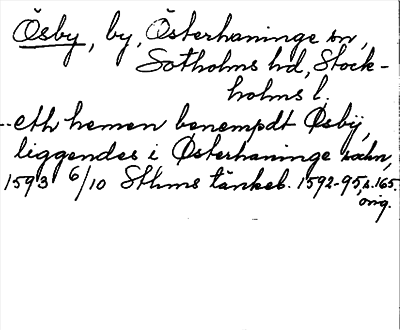 Ösby, by, Österhaninge sn,
Sotholms hd, Stock-
holms l.
--eth hemen benempdt Øsbÿ,
liggendes i Østerhaninge sochn,
1593 6/10 Sthms tänkeb. 1592-95, s. 165.
orig.